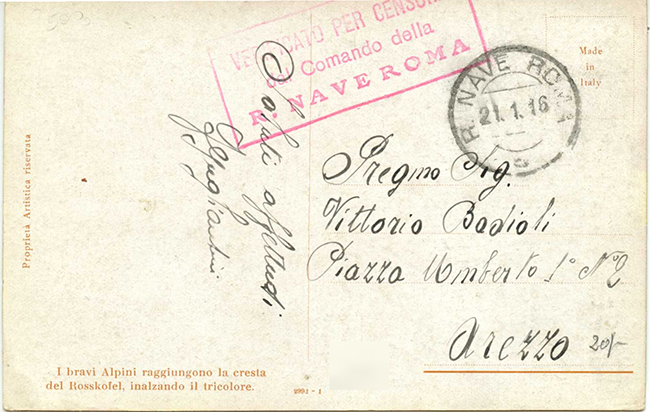 VERIFICATO PER CENSURA
dal Comando della
R. NAVE ROMA
R. NAVE ROMA
21.1.16
Made
in
Italy
Proprietà Artistica riservata
Saluti affettuosi
Pregmo Sig.
Vittorio Badioli
Piazza Umberto 1º Nº2
Arezzo
20/-
I bravi Alpini raggiungono la cresta
del Rosskofel, inalzando il tricolore.
2992 - 1